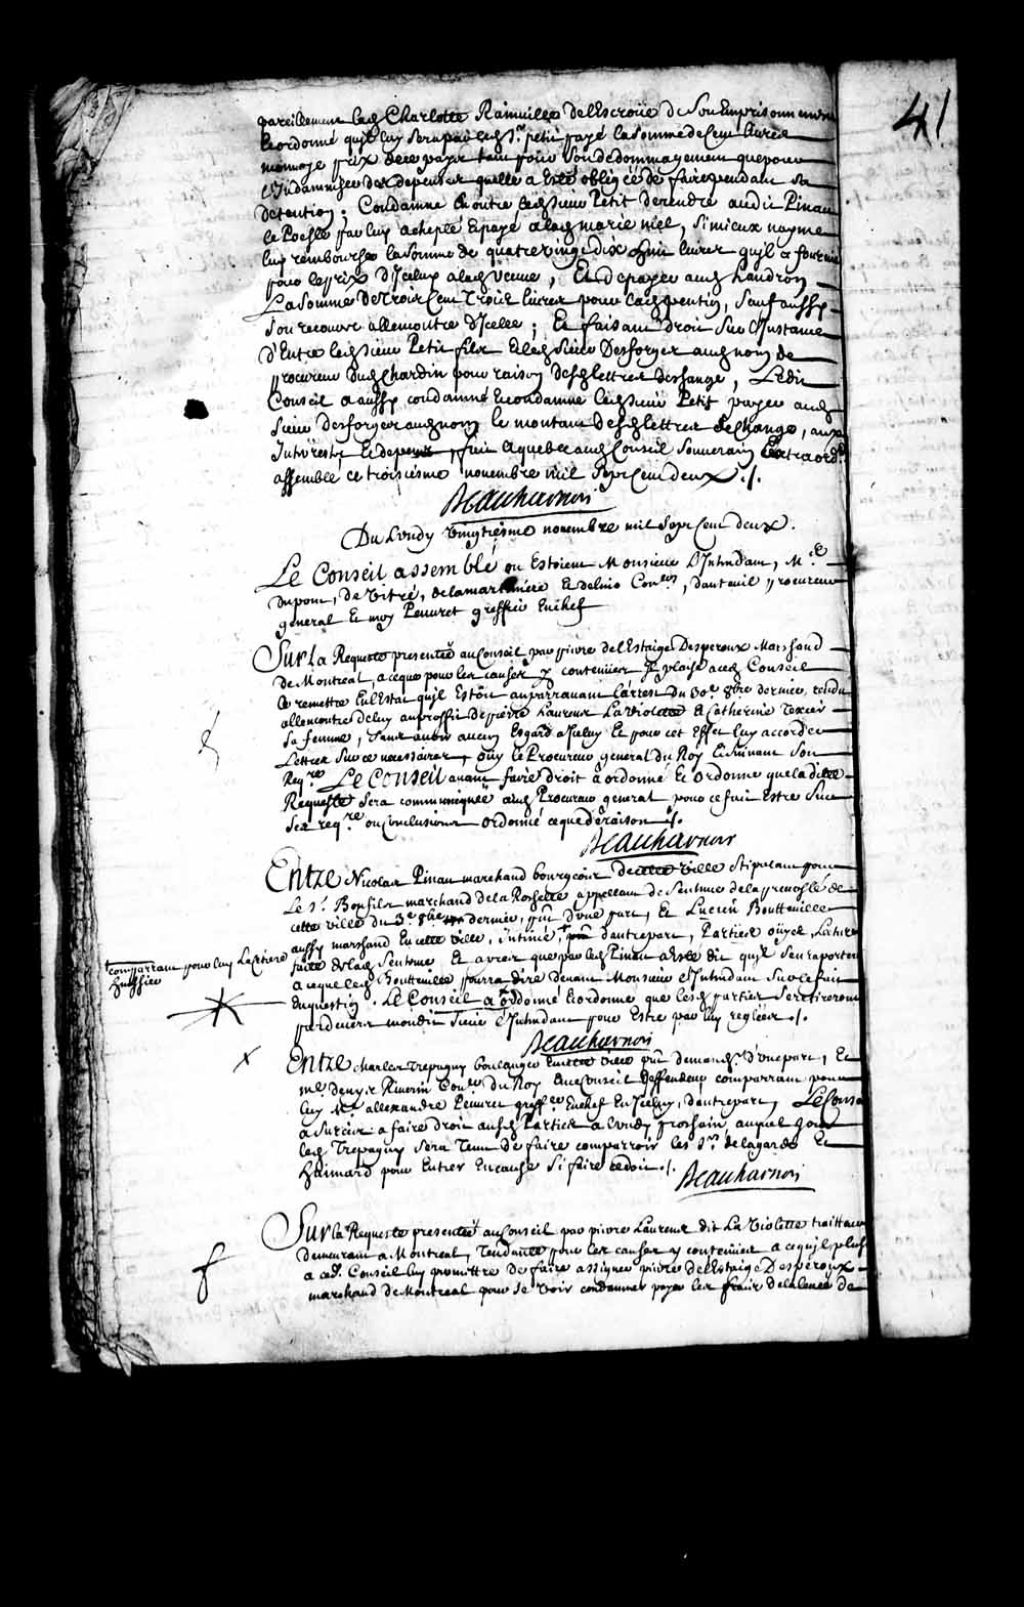 41
pareillement lad. Charlotte Rainville de l'Escroüe de son Emprisonnement
Et ordonné quil luy sera par led. Sr. petit payé la somme de Cent livres
monnoye prix de ce pays tant pour son dedommagement que pour
l'Indamniser des depenses quelle a Esté obligée de faire pendant sa
detention; Condamne En outre led. sieur Petit de rendre audit Pinau
le Poesle par luy achepté Et payé a lad. marie niel, si mieux n'ayme
luy rembourser la somme de quatre vingt dix huit livres quil a fournie
pour le prix d'Iceluy a lad. veuve, Et de payer aud. haudron
La somme de Trois Cent Trois livres pour lad. pention, sauf aussy
son recours allencontre d'Icelle; Et faisant droit sur l'Instance
d'Entre led. sieur Petit fils Et led. sieur Desforges aud. nom de
procureur dud. Chardin pour raison desd. lettres deschange, Ledit
Conseil a aussy condamné Et condamne led. sieur Petit payer aud.
sieur desforges aud. nom le montant desd. lettres de Change, aux
Intérests, Et depens, fait a quebec aud. Conseil Souverain Extraord.
assemblé ce troisiesme novembre mil Sept Cent deux ./.
Beauharnois
Du Lundy vingtiesme novembre mil Sept Cent deux.
Le Conseil assemblé ou Estoient Monsieur L'Intendant, Mre
dupont, de vitré, de lamartiniere Et delino Conrs, dauteuil procureur
general Et moy Peuvret greffier En chef
Sur la Requeste presentée au Conseil par pierre de lEstaige Desperoux Marchand
de Montreal, a ce que pour les causes y contenües Il plaise aud. Conseil
le remettre En lEstat quil Estoit auparravant larrest du 30e 8bre dernier, rendu
allencontre de luy au proffit de pierre Laurens La violette Et Catherine Texier
sa femme, sans avoir aucun Esgard a Iceluy Et pour cet Effet luy accorder
Lettres sur ce necessaires, oüy le Procureur general du Roy Et suivant son
Reqre Le Conseil avant faire droit a ordonné Et ordonne que ladite
Requeste sera communiquée aud. Procureur general pour ce fait Estre sur
ses reqre ou Conclusions ordonné ce que de raison ./.
Beauharnois
Entre Nicolas Pinau marchand bourgeois de cette ville stipulant pour
Le Sr. Bonfils marchand de la Rochelle appellant de Sentence de la prevosté de
cette ville du 3e 8bre dernier, pnt d'une part, Et Lucien Boutteville
aussy marchand En cette ville, Intimé, d'autre part, Parties oüyes, Lecture
comparrant pour luy La Cetiere
huissier
faite de lad. Sentence Et apres que par led. Pinau a Esté dit quil sen raporte
a ce que led. Boutteville pourra dire devant Monsieur l'Intendant sur le fait
En question. Le Conseil a ordonné Et ordonne que lesd. parties se retireront
pardevers mondit Sieur l'Intendant pour Estre par luy regléés ./.
Beauharnois
Entre charles Trepagny boulanger En cette ville pnt demandr. d'une part, Et
Me. denys Riverin Conr du Roy En ce Conseil deffendeur comparrant pour
luy Me. allexandre Peuvret greffer En chef En Iceluy, d'autre part, Le Conseil
a surcis a faire droit ausd. Parties a Lundy prochain, auquel jour
led. Trepagny sera Tenu de faire comparroir les Srs. de lagarde Et
haimard pour Entrer En cause si faire se doit ./. Beauharnois
Sur la Requeste presentée au Conseil par pierre Laurens dit La violette traitteur
demeurant a Montreal, Tendante pour les causes y contenües a ce quil plust
a ced. Conseil luy permettre de faire assigner pierre de lEstaige Desperoux
marchand de Montreal pour se voir condamner payer les frais de la levée de